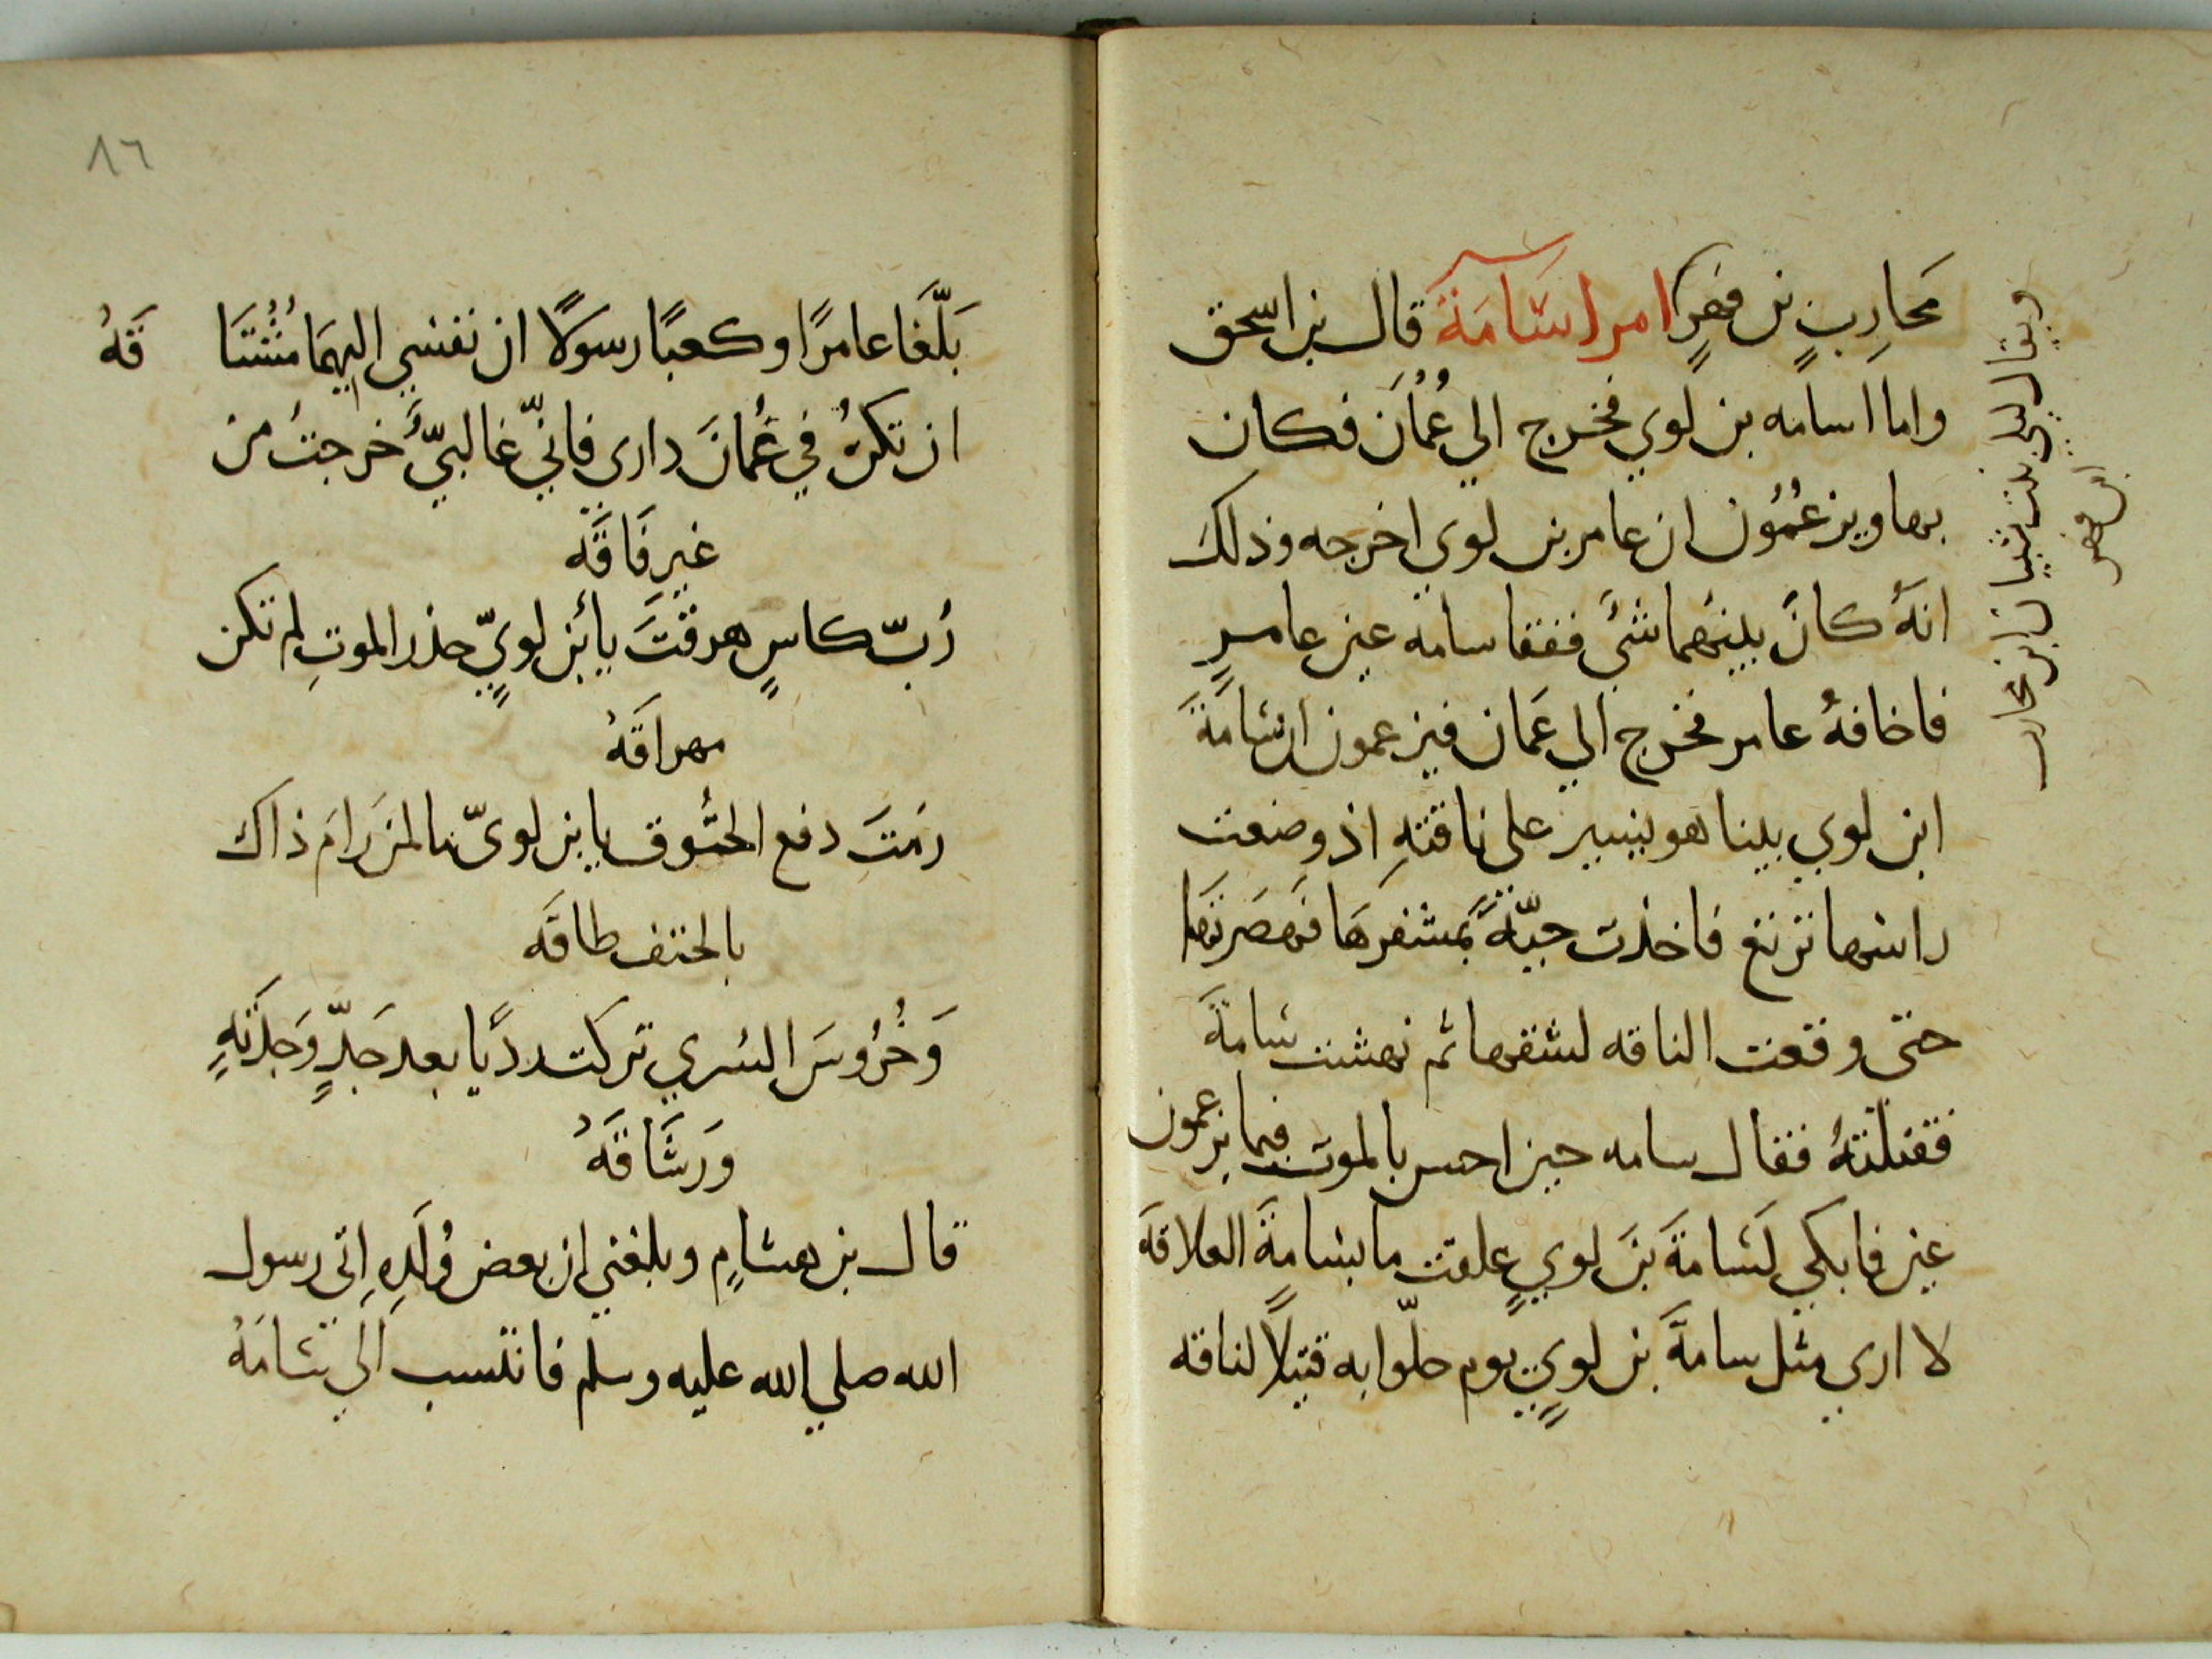 محاربٍ بن فهرٍ امر اسَامَةَ قال بن اسحق
واما اسامه بن لوي فخرج الي عُمُاَن فكان
بها ويزعُمُون ان عامر بن لوي اخرجه وذلك
انهُ كانَ بينهما شئَ ففقا سامه عين عامرٍ
فاخافهُ عامر فخرج الي عَمان فيزعمون ان سَامَةَ
ابن لوي بينا هو يسير على ناقتهِ اذ وضعت
راسها ترتع فاخذت حيّةٌ بمشفرهَا فَهصَرتهَا
حتى وقعت الناقه لشقها ثم نهشت سَامةَ
فقتلتهُ فقال سامه حين احس بالموت فيما يزعمون
عين فابكي لسَامَةَ بنَ لويٍ علقت ما بسَامةٍَ العلاقهَ
لا اري مثل سامةَ بن لويٍ يوم حلّوا به قتيلاً لناقه
ويقال ليلي بنت شيبان ابن محارب
ابن فهر
٨٦
بَلّغَا عامرًا وكعبًا رسولًا ان نفسي اليهمَا مُشْتَا قَهُ
ان تكنْ في عُمانَ داري فانيّ غالبيٌّ خرجتُ من
غير فَاقَه
رُبّ كاسٍ هرقتَ يأبن لويٍّ حذر الموتِ لم تكن
مهراقَهُ
رمتَ دفع الحتُوف يا بن لويّ ما لمن رَامَ ذاك
بالحتف طاقَه
وَخُرُوسَ السُري تركت رديًا بعد جَدٍّ وَجدّتهِ
وَرشَاقَهُ
قال بن هشامٍ وبلغني ان بعض وُلَدِهِ اتى رسول
الله صلي الله عليه وسلم فانتسب الَي سَامَهُ